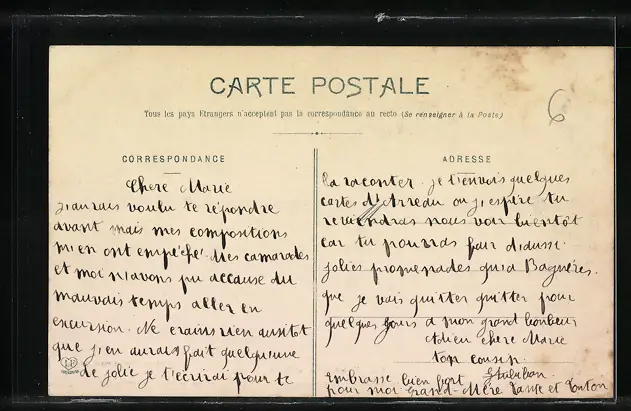 CARTE POSTALE
Tous les pays Etrangers n'acceptent pas la correspondance au recto (Se renseigner à la Poste)
6
CORRESPONDANCE
Chere Marie
j'aurais voulu te répondre
avant mais mes compositions
m'en ont empêché. Mes camarades
et moi n'avons pu accause du
mauvais temps aller en
excursion. Ne crains rien aussitot
que j'en aurais fait quelqu'une
de jolie je t'ecrirai pour te
ADRESSE
la raconter. je t'envois quelques
cartes d'Arreau ou j'espère tu
reviendras nous voir bientôt
car tu pourras fair d'aussi
jolies promenades qu'a Bagnères.
que je vais quitter quitter pour
quelques jours a mon grand bonheur
Adieu chere Marie
ton cousin
embrasse bien fort
pour moi Grand-Mère Tante et Tonton